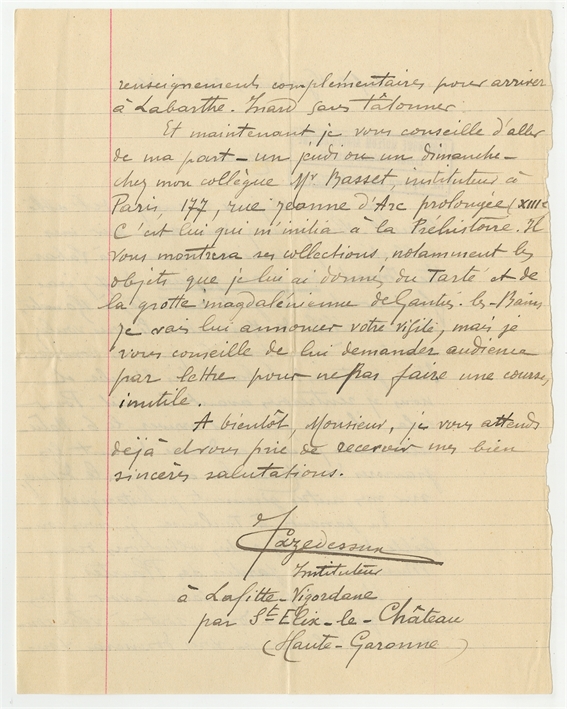 renseignements complémentaires pour arriver
à Labarthe-Inard sans tâtonner.
Et maintenant je vous conseille d'aller
de ma part - un jeudi ou un dimanche -
chez mon collègue Mr Basset, instituteur à
Paris, 177, rue Jeanne d'Arc prolongée (XIIIe
C'est lui qui m'initia à la Préhistoire. Il
vous montrera ses collections, notamment les
objets que je lui ai donnés du Tarté et de
la grotte magdalénienne de Gantes-les-Bains
Je vais lui annoncer votre visite, mais je
vous conseille de lui demander audience
par lettre pour ne pas faire une course
inutile.
A bientôt, Monsieur, je vous attends
déjà et vous prie de recevoir mes bien
sincères salutations.
J Cazedessus
Instituteur
à Lafitte-Vigordane
par St Elix-le-Château
(Haute-Garonne)